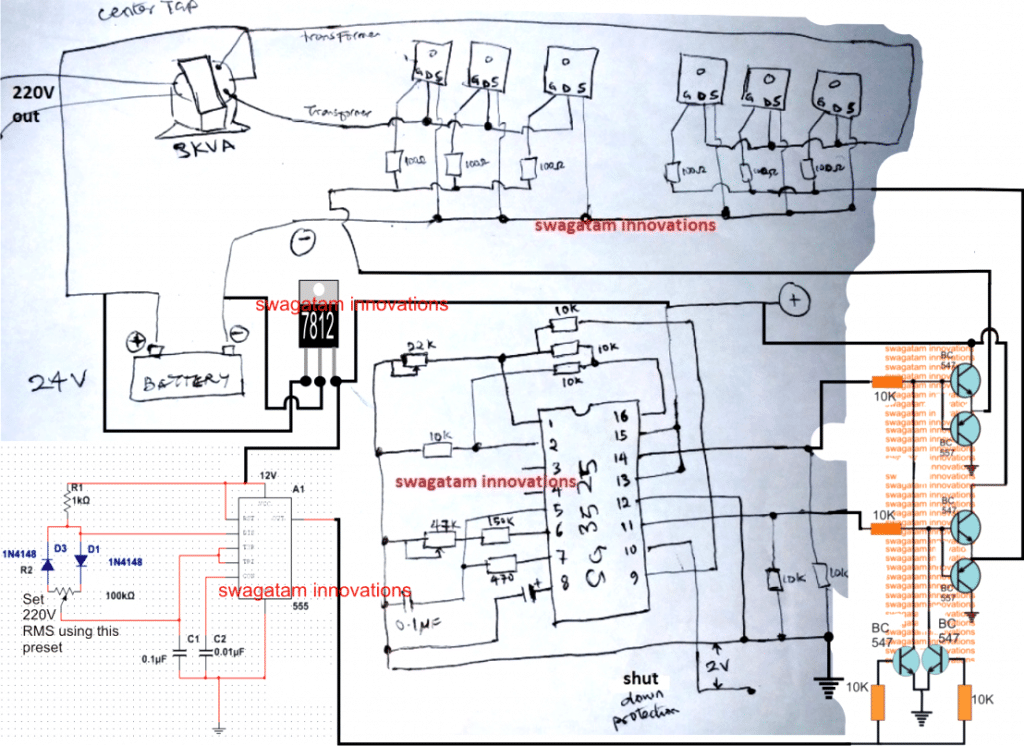 center Tap
transformer
220V
out
Transformer
3KVA
G D S
G D S
G D S
G D S
G D S
G D S
100Ω
100Ω
100Ω
100Ω
100Ω
100Ω
swagatam innovations
−
swagatam innovations
7812
+
+
−
24V
BATTERY
22K
10K
10K
10K
10K
1
2
3
4
5
6
7
8
16
15
14
13
12
11
10
9
SG 3525
swagatam innovations
47K
150K
470
+
0.1µF
10K
10K
2V
shut
down
protection
swagatam innovations
BC
547
10K
BC
557
10K
BC
547
BC
557
BC
547
BC
547
10K
10K
12V
A1
R1
1kΩ
1N4148
D3
D1
1N4148
R2
100kΩ
555
swagatam innovations
Set
220V
RMS using this
preset
C1
C2
0.1µF
0.01µF